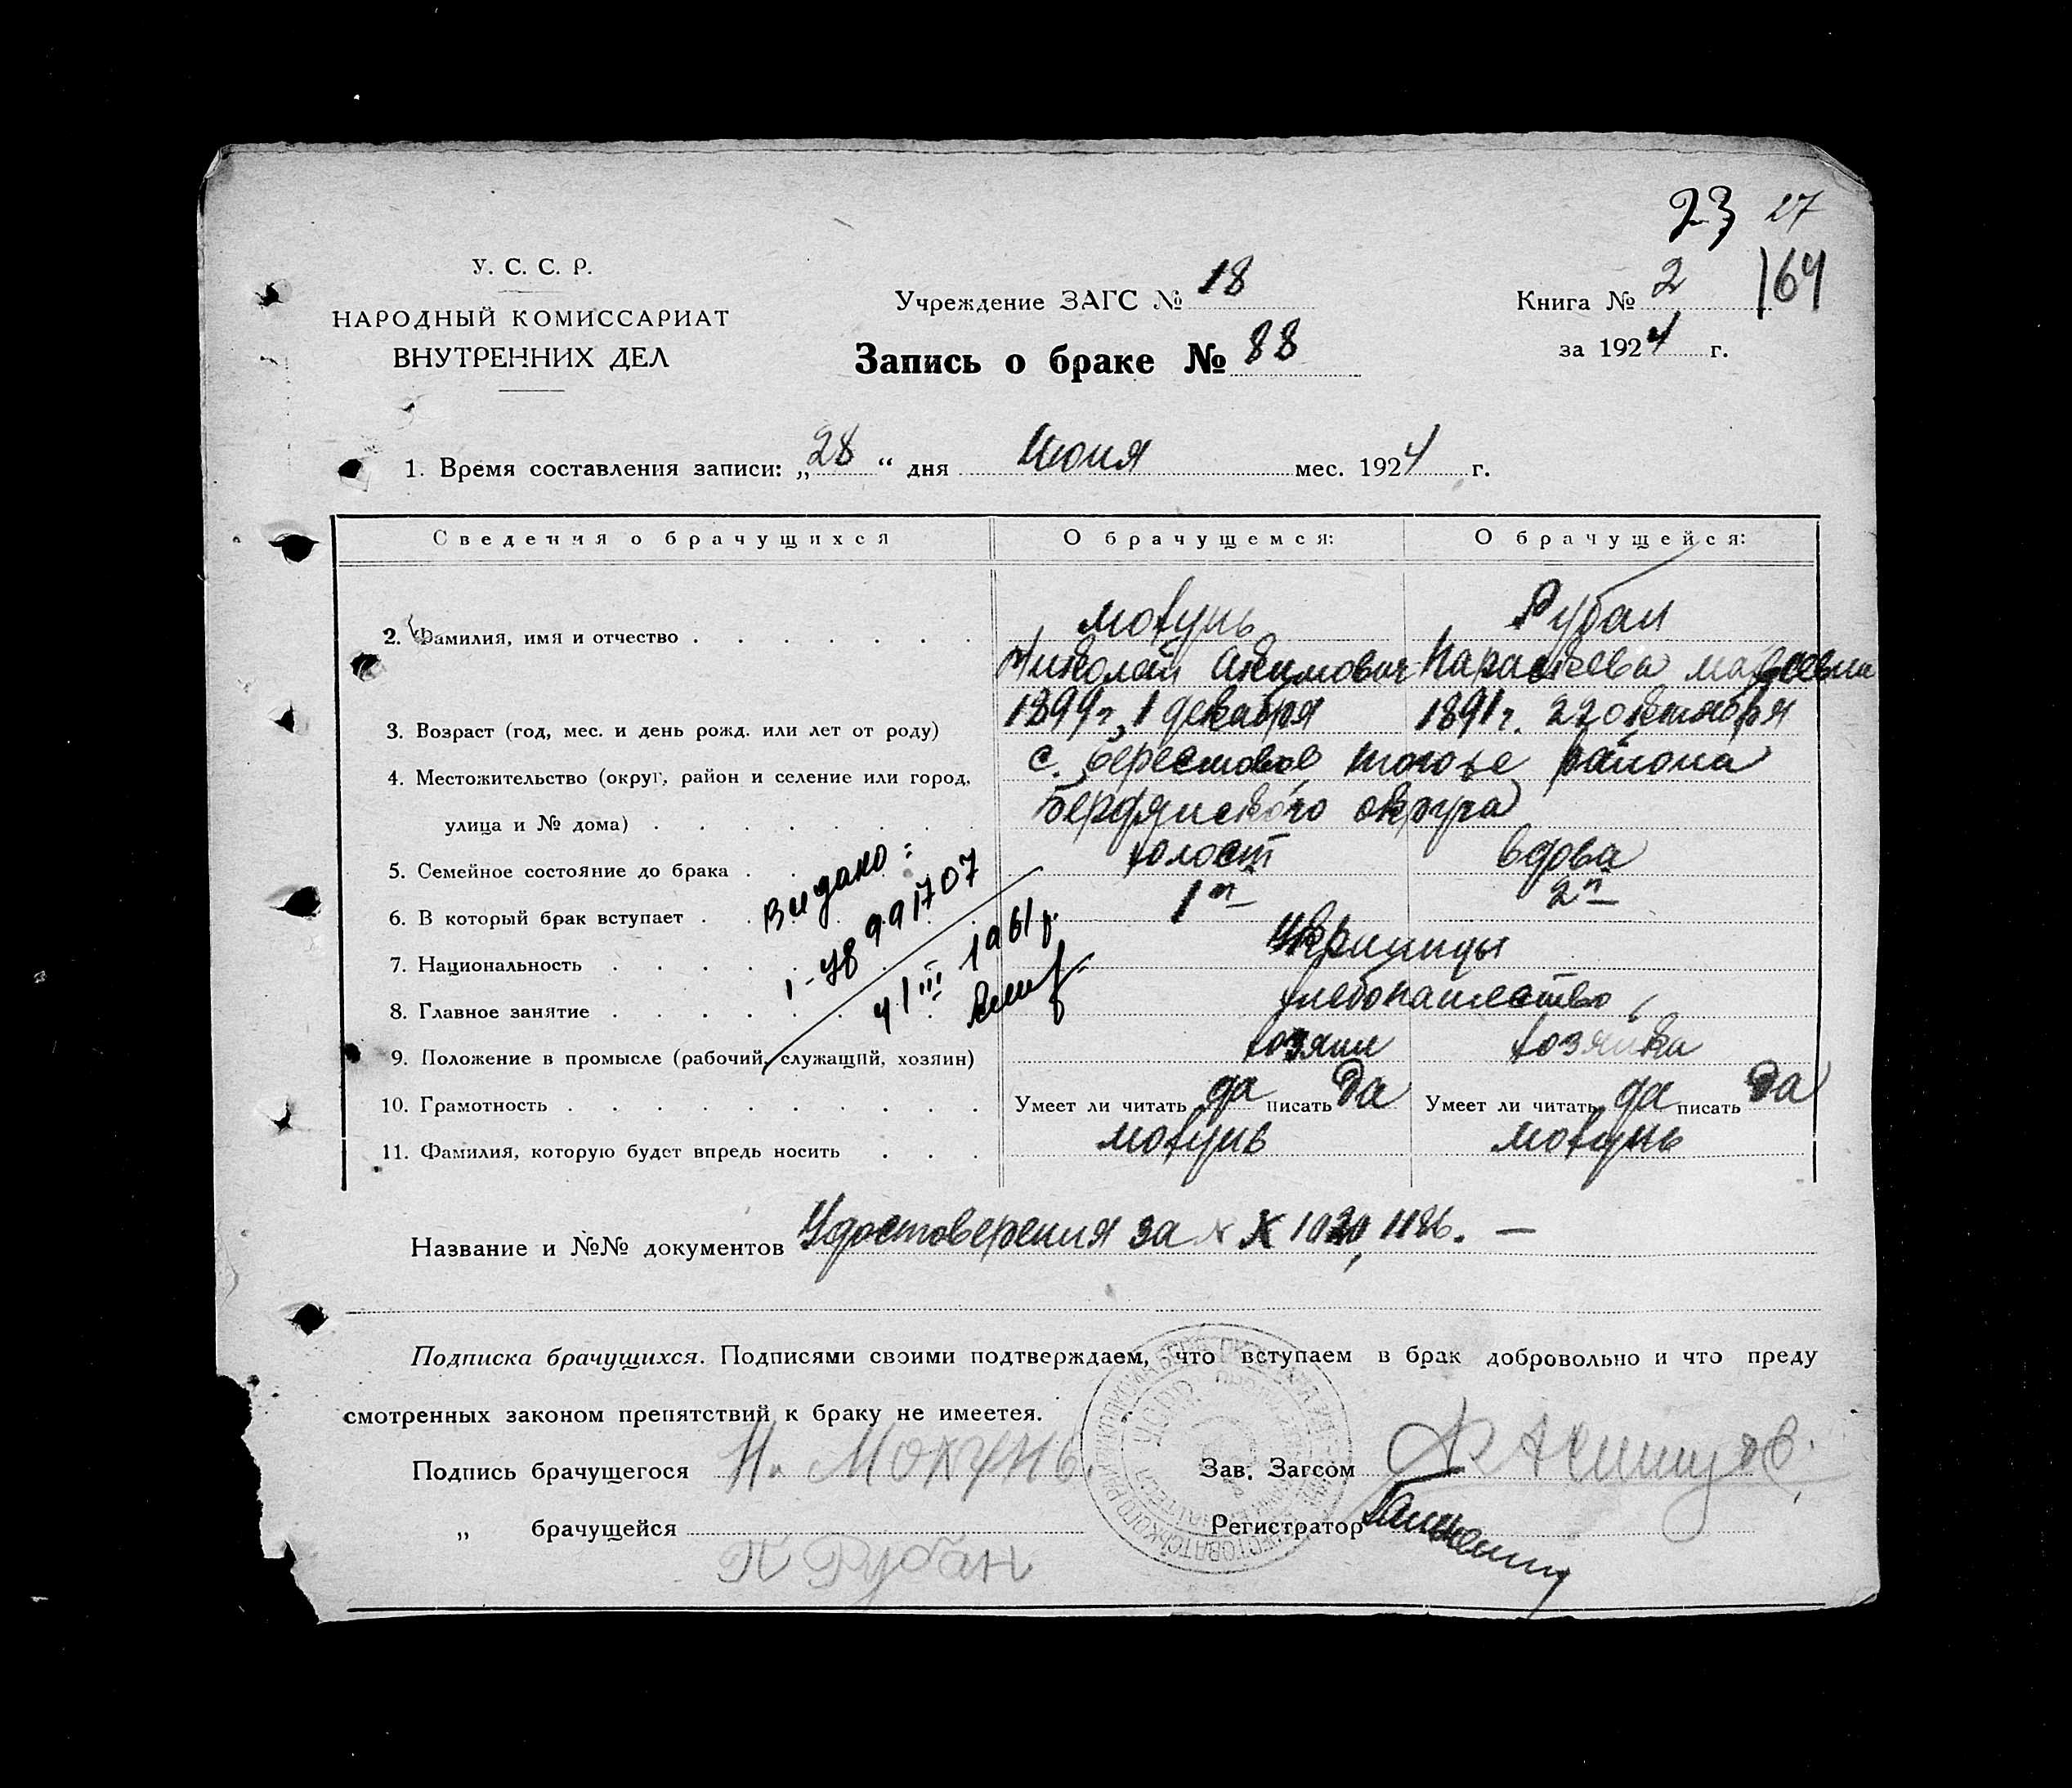 23 27
164
У. С. С. Р.
НАРОДНЫЙ КОМИССАРИАТ
ВНУТРЕННИХ ДЕЛ
Учреждение ЗАГС № 18
Запись о браке № 88
Книга № 2
за 1924 г.
1. Время составления записи: „28“ дня Июня мес. 1924 г.
Сведения о брачущихся О брачущемся: О брачущейся:
2. Фамилия, имя и отчество Мохунь Рубан
Николай Акимович Параскева
3. Возраст (год, мес. и день рожд. или лет от роду) 1899 г., 1 декабря 1891 г. 22 октября
4. Местожительство (округ, район и селение или город, с. Берестовое, того же района
улица и № дома) Бердянского округа
5. Семейное состояние до брака холост вдова
6. В который брак вступает 1й 2й
7. Национальность Украинцы
8. Главное занятие хлебопашество
9. Положение в промысле (рабочий, служащий, хозяин) хозяин хозяйка
10. Грамотность Умеет ли читать да писать да Умеет ли читать да писать да
11. Фамилия, которую будет впредь носить Мохунь Мохунь
Видано:
I-ЧВ 991707
4/III 1961 р.
Название и №№ документов Удостоверения за 1186. —
Подписка брачущихся. Подписями своими подтверждаем, что вступаем в брак добровольно и что преду
смотренных законом препятствий к браку не имеется.
Подпись брачущегося Н. Мохунь. Зав. Загсом
„ брачущейся П Рубан Регистратор